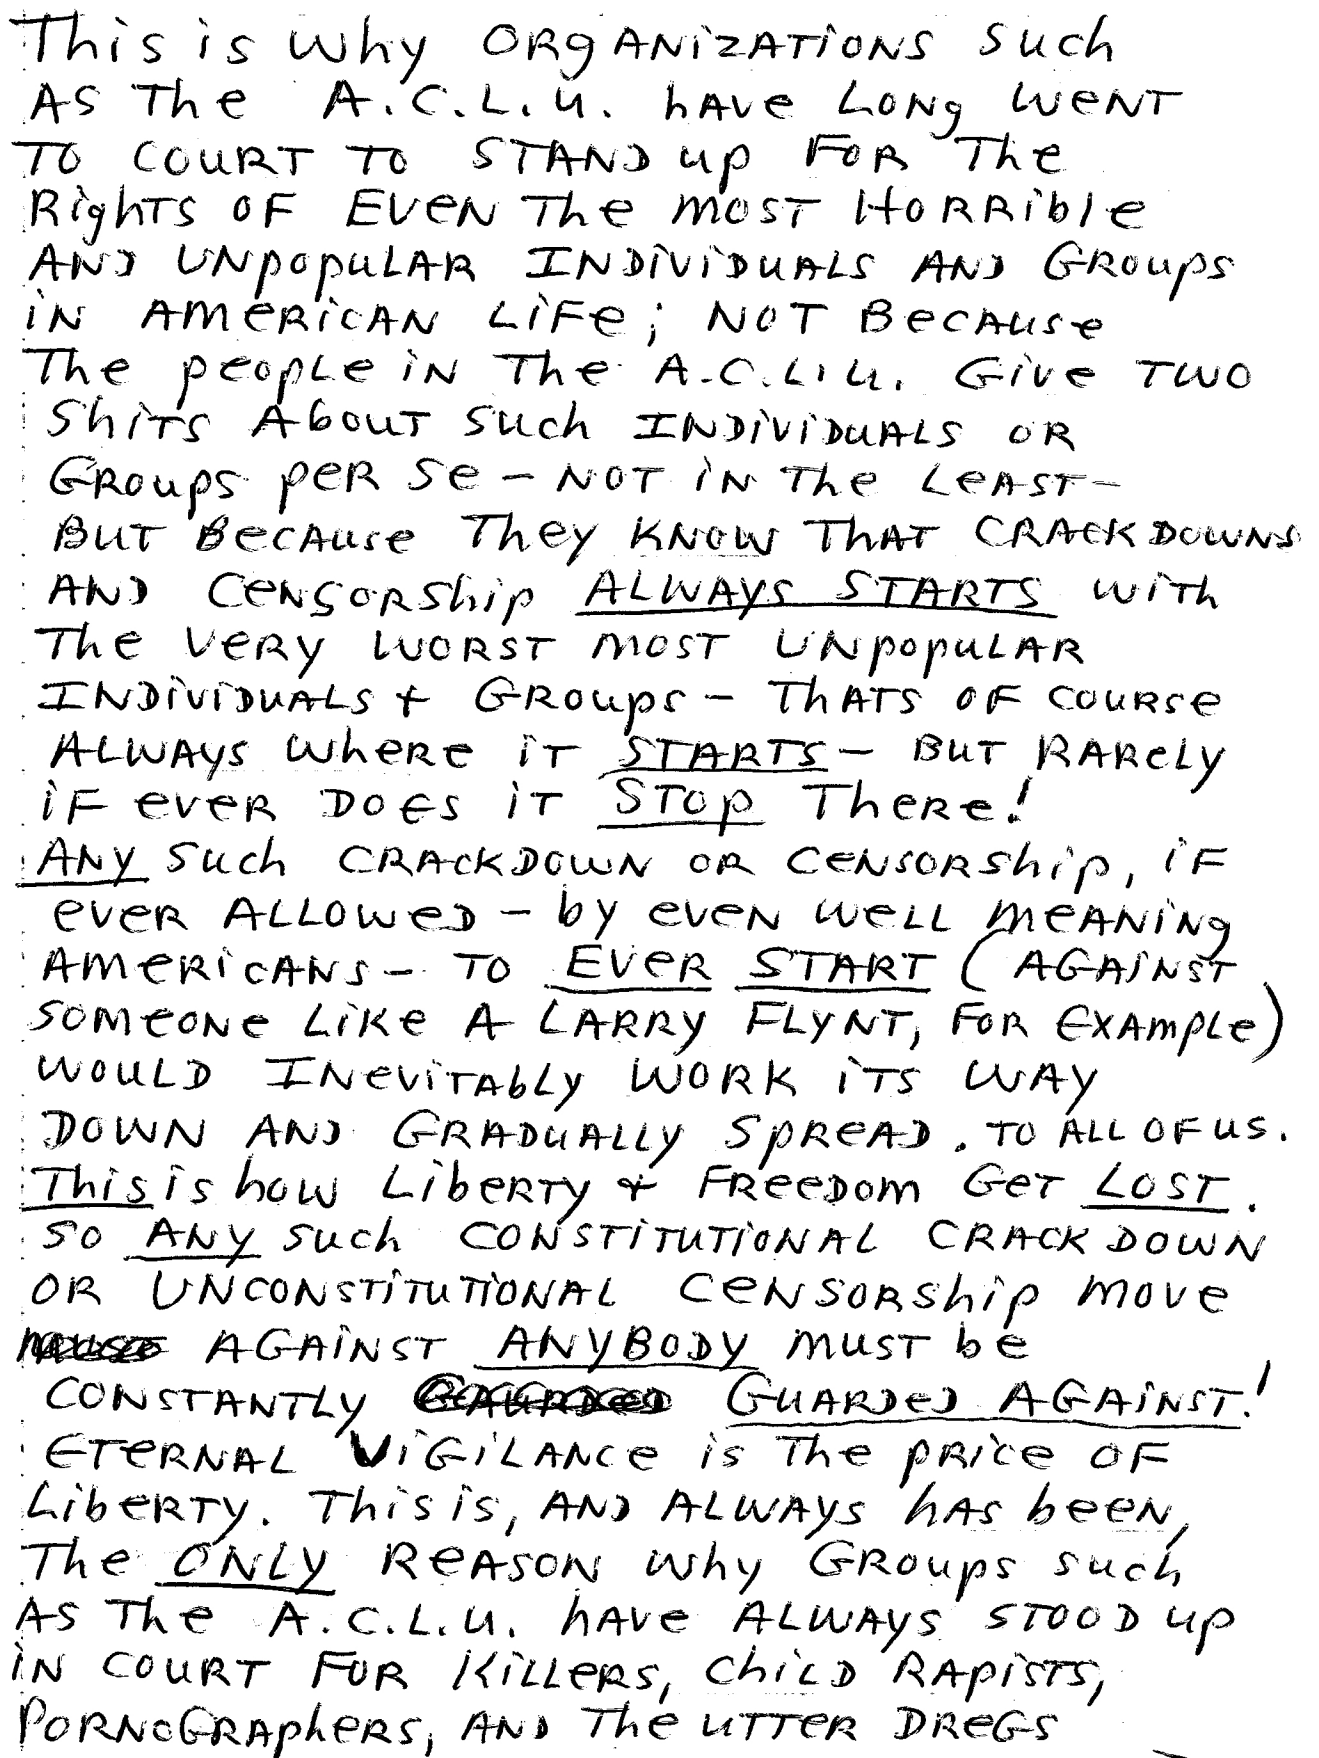 This is why ORGANIZATIONS such
AS The A.C.L.U. hAVe LONg WeNT
TO COURT TO STAND up FOR The
RighTS OF EVeN The MOST HORRible
AND UNpopuLAR INDiViDUALS AND GROups
iN AMeRiCAN LiFe; NOT BeCAUse
The peopLe iN The A.C.L.U. GiVe TWO
ShiTS AbOUT such INDiViDUALS OR
GROups peR Se - NOT iN The LeAST-
BUT BeCAuse They KNOW THAT CRACKDOWNS
AND CeNSORship ALWAYS STARTS WiTh
The VeRy WORST MOST UNpopuLAR
INDiViDUALS + GROups - ThATS OF COURSe
ALWAYS WheRe iT STARTS - BUT RARely
iF eveR DOES iT STOp TheRe!
ANY such CRACKDOWN OR CeNSORship, iF
eveR ALLOWeD - by eveN WeLL MeANiNg
AMeRiCANS - TO EVeR START (AGAiNST
SOMeONe LiKe A LARRY FLYNT, FOR EXAMpLe)
WOULD INeViTAbLy WORK iTS WAY
DOWN AND GRADUALLY SpReAD. TO ALL OF US.
This is how LibeRTy + FReeDOM GeT LOST.
SO ANY such CONSTiTUTiONAL CRACKDOWN
OR UNCONSTiTUTiONAL CeNSORship MOVe
AGAiNST ANYBODY MUST be
CONSTANTLY GUARDeD AGAiNST!
ETeRNAL ViGiLANCe is The pRiCe OF
LibeRTy. This is, AND ALWAYS hAS beeN,
The ONLY ReASON why GROups such
AS The A.C.L.U. hAVe ALWAYS STOOD up
iN COURT FOR KiLLeRS, ChiLD RApiSTS,
PORNOGRApheRS, AND The UTTeR DReGS